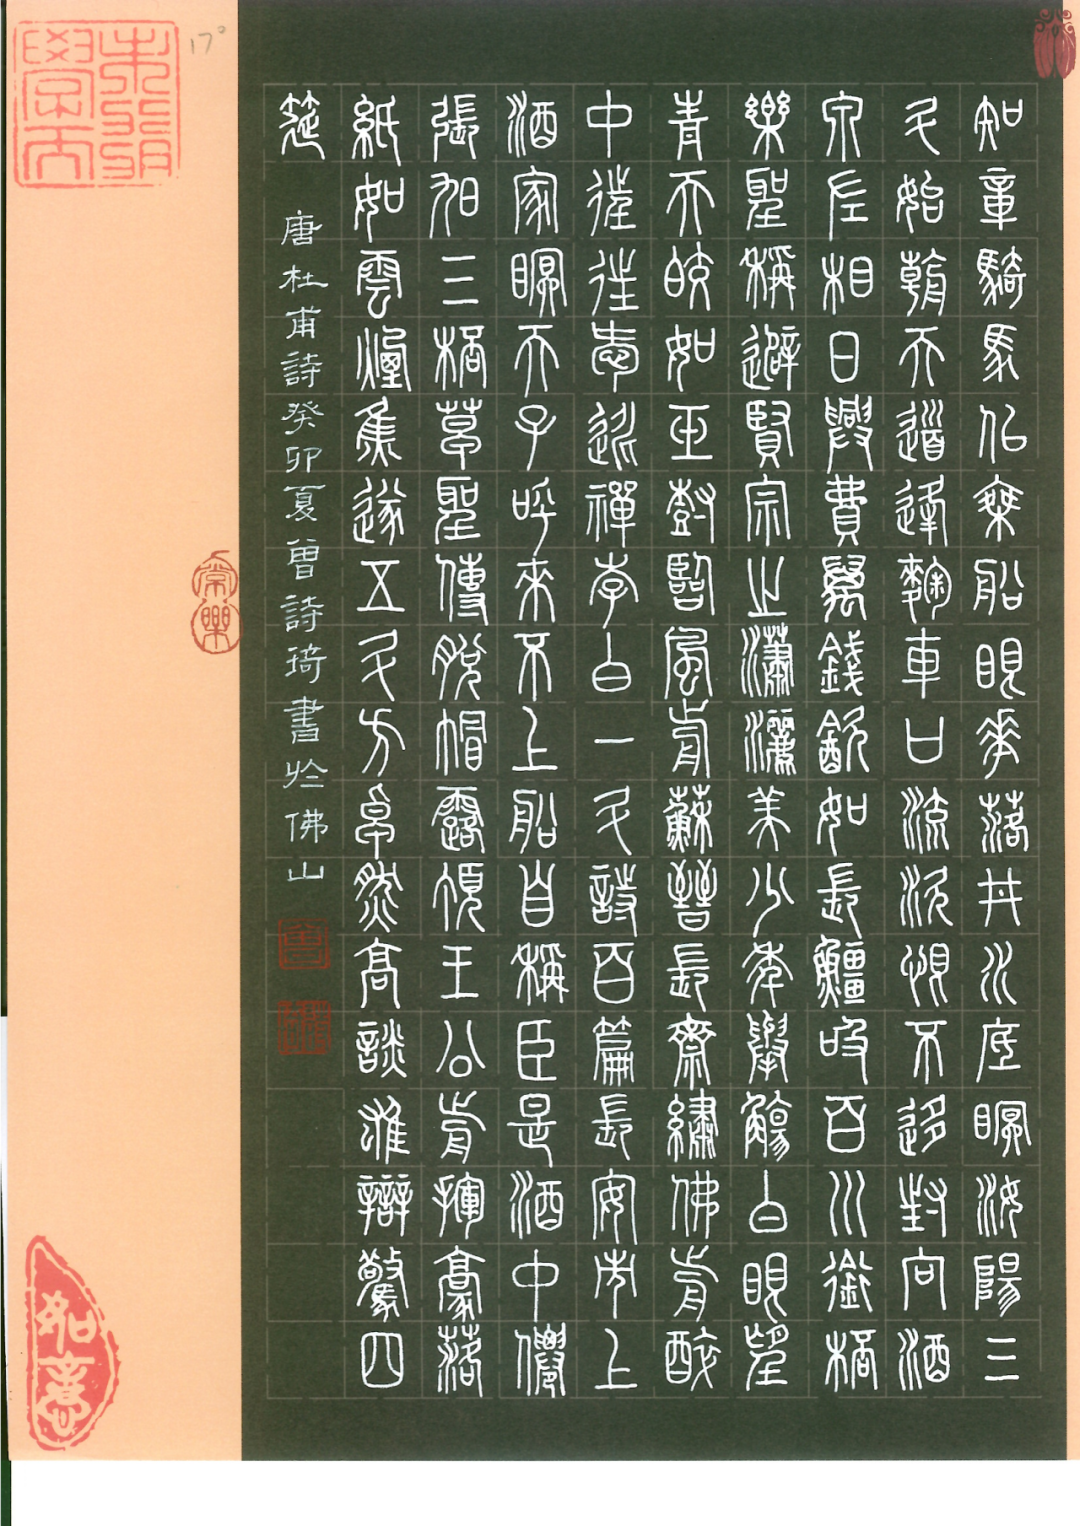 知章騎馬似乘船眼花落井水底眠汝陽三
斗始朝天道逢麴車口流涎恨不移封向酒
泉左相日興費萬錢飲如長鯨吸百川銜杯
樂聖稱避賢宗之瀟灑美少年舉觴白眼望
青天皎如玉樹臨風前蘇晉長齋繡佛前醉
中往往愛逃禪李白一斗詩百篇長安市上
酒家眠天子呼來不上船自稱臣是酒中僊
張旭三杯草聖傳脫帽露頂王公前揮毫落
紙如雲煙焦遂五斗方卓然高談雄辯驚四
筵
唐杜甫詩癸卯夏曾詩琦書於佛山
常樂
如意
17°